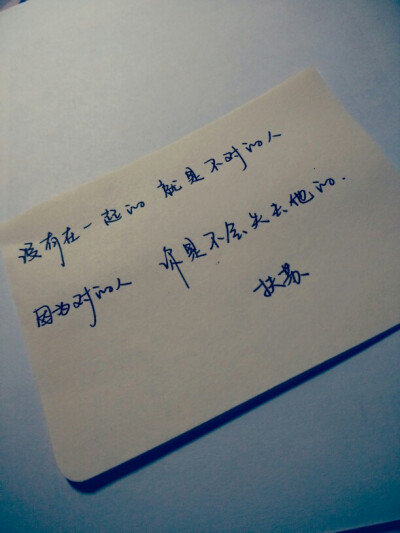 没有在一起的 就是不对的人
因为对的人 你是不会失去他的.
扶苏